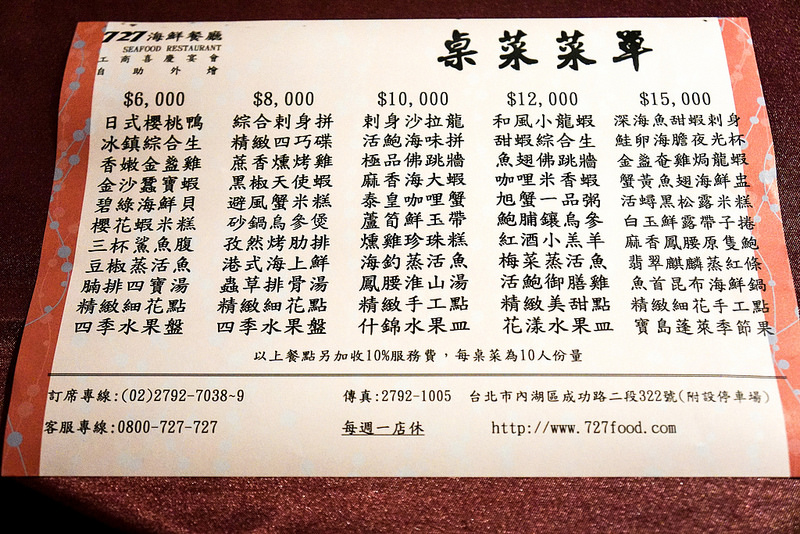 727海鮮餐廳
SEAFOOD RESTAURANT
工商喜慶宴會
自助外燴
桌菜菜單
$6,000 $8,000 $10,000 $12,000 $15,000
日式櫻桃鴨 綜合刺身拼 刺身沙拉龍 和風小龍蝦 深海魚甜蝦刺身
冰鎮綜合生 精緻四巧碟 活鮑海味拼 甜蝦綜合生 鮭卵海膽夜光杯
香嫩金盞雞 蔗香燻烤雞 極品佛跳牆 魚翅佛跳牆 金盞奄雞焗龍蝦
金沙蠶寶蝦 黑椒天使蝦 麻香海大蝦 咖哩米香蝦 蟹黃魚翅海鮮盅
碧綠海鮮貝 避風蟹米糕 泰皇咖哩蟹 旭蟹一品粥 活蟳黑松露米糕
櫻花蝦米糕 砂鍋烏參煲 蘆筍鮮玉帶 鮑脯鑲烏參 白玉鮮露帶子捲
三杯鯊魚腹 孜然烤肋排 燻雞珍珠糕 紅酒小羔羊 麻香鳳腰原隻鮑
豆椒蒸活魚 港式海上鮮 海釣蒸活魚 梅菜蒸活魚 翡翠麒麟蒸紅條
腩排四寶湯 蟲草排骨湯 鳳腰淮山湯 活鮑御膳雞 魚首昆布海鮮鍋
精緻細花點 精緻細花點 精緻手工點 精緻美甜點 精緻細花手工點
四季水果盤 四季水果盤 什錦水果皿 花漾水果皿 寶島蓬萊季節果
以上餐點另加收10%服務費，每桌菜為10人份量
訂席專線:(02)2792-7038~9 傳真:2792-1005 台北市內湖區成功路二段322號(附設停車場)
客服專線:0800-727-727 每週一店休 http://www.727food.com